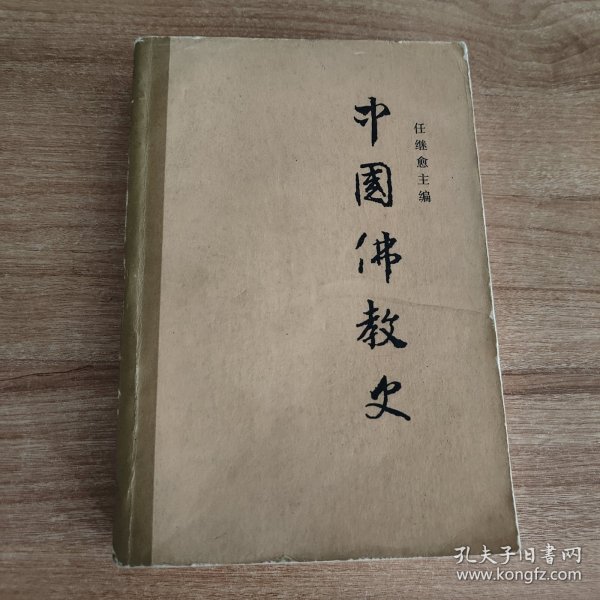 任继愈主编
中国佛教史
孔夫子旧书网
www.kongfz.com